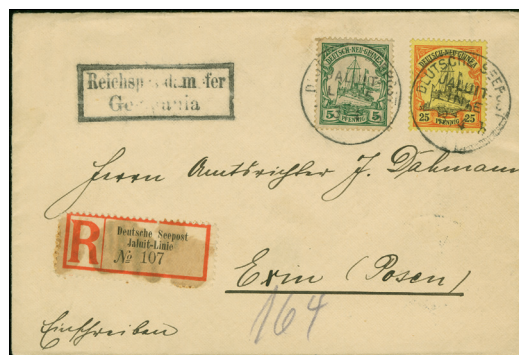 Reichspostdampfer
Germania
DEUTSCH-NEU-GUINEA
5 PFENNIG 5
DEUTSCH-NEU-GUINEA
25 PFENNIG 25
DEUTSCHE SEEPOST
JALUIT-
LINIE
Herrn Amtsrichter J. Dahmann
R
Deutsche Seepost
Jaluit-Linie
№ 107
Exin (Posen)
164
Einschreiben